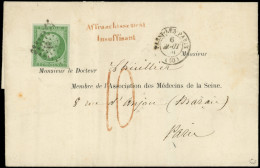 Affranchissement
insuffisant
Monsieur
Monsieur le Docteur
Membre de l'Association des Médecins de la Seine.
8 rue d'Anjou (Marais)
Paris
10